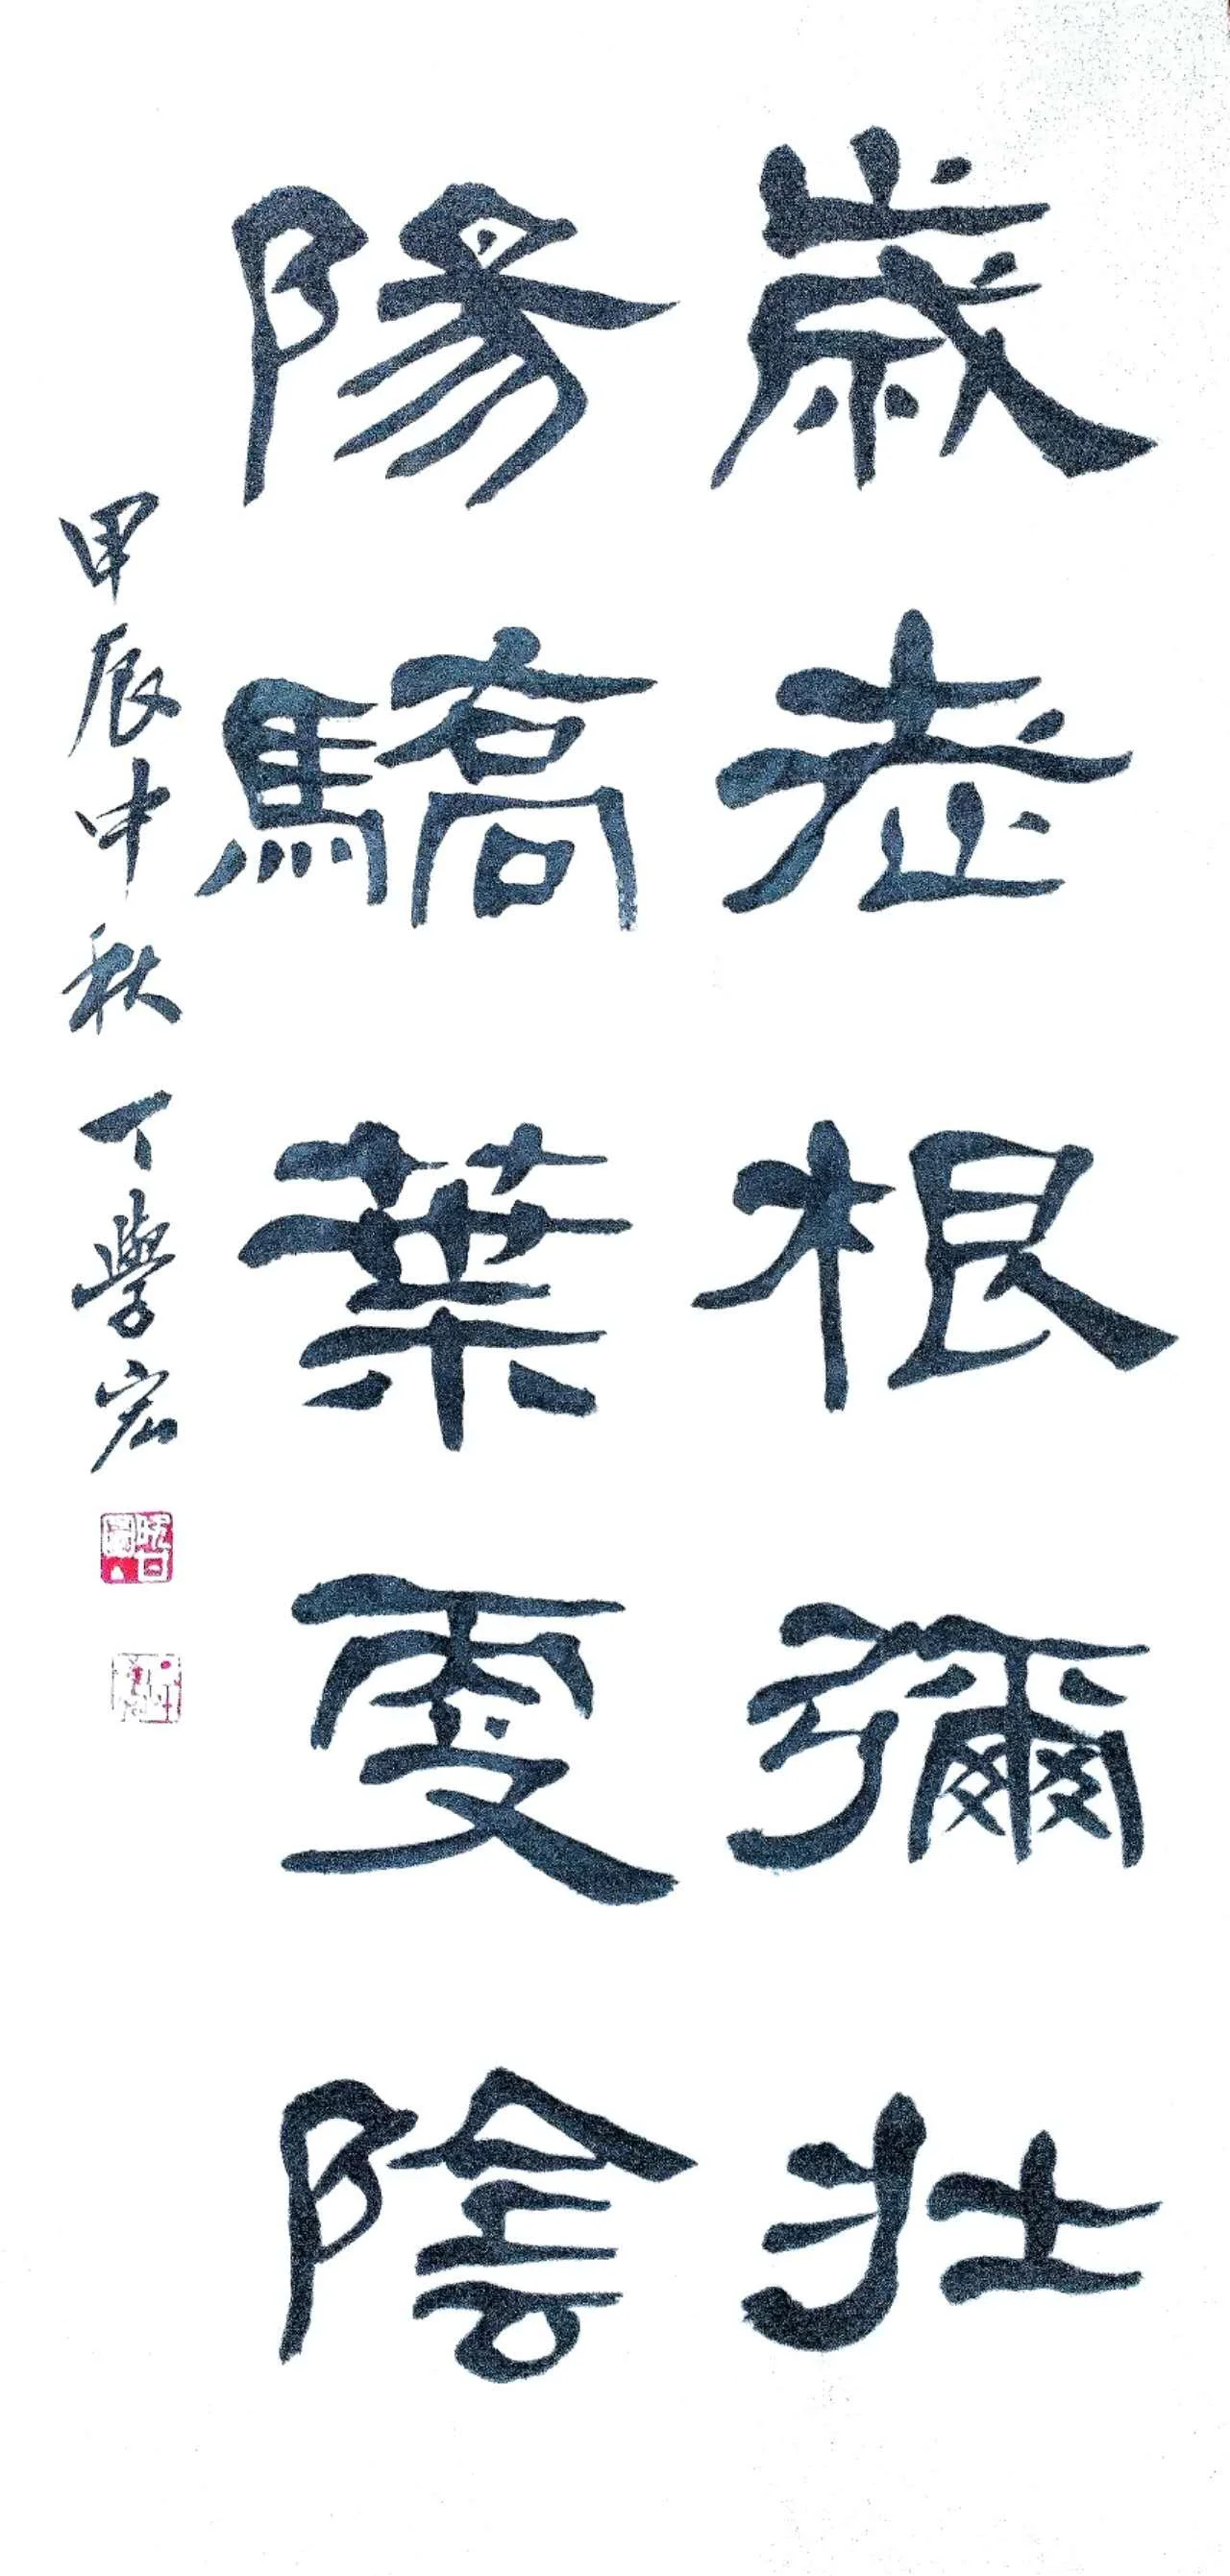 歲老根彌壯
陽驕葉更陰
甲辰中秋 丁學宏